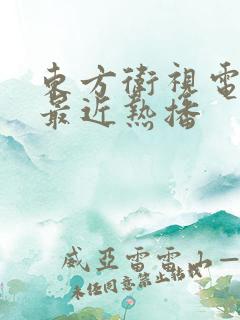 東方衛視電
最近热播
威亞雷雷山一
未任同意禁止轉載